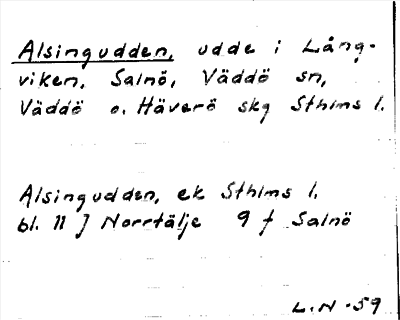 Alsingudden, udde i Lång-
viken, Salnö, Väddö sn,
Väddö o. Häverö skg Sthlms l.
Alsingudden, ek Sthlms l.
bl. 11 J Norrtälje 9 f Salnö
L.N -59